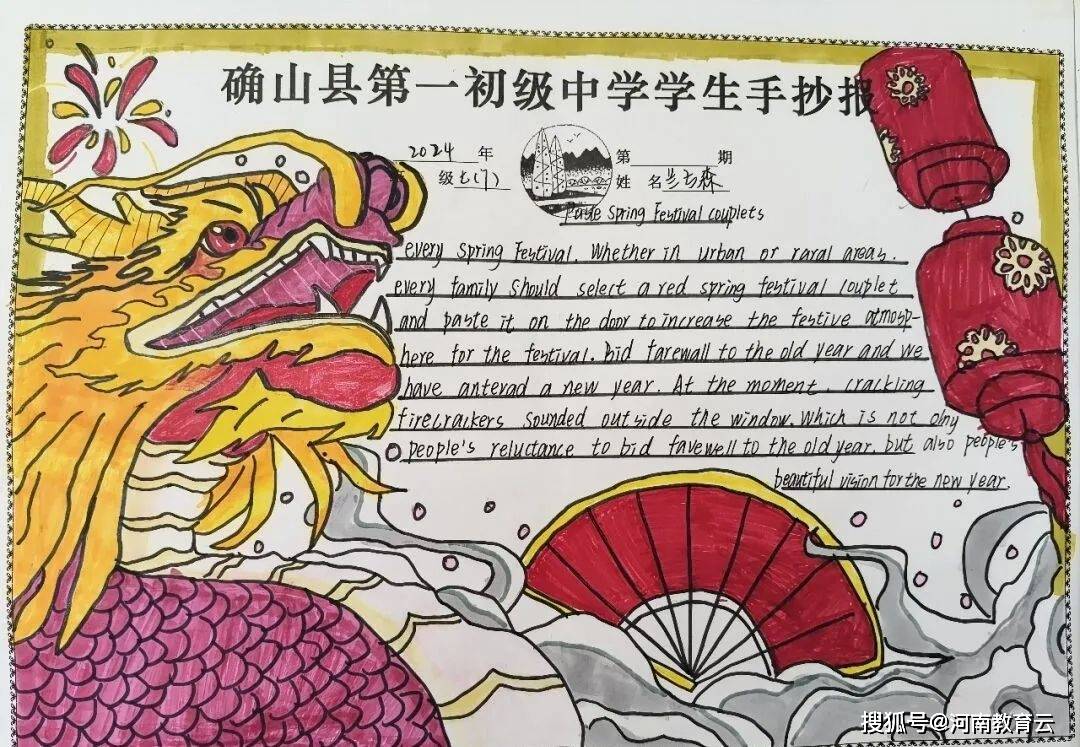 确山县第一初级中学学生手抄报
2024 年 第 期
级 七(7) 姓 名 兰 森
Paste Spring Festival couplets
every spring Festival. Whether in urban or raral areas.
every family should select a red spring festival couplet
and paste it on the door to increase the festive atmosp-
here for the festival. Bid farewall to the old year and we
have anterad a new year. At the moment. crackling
firecrackers sounded outside the window. Which is not olny
people's reluctance to bid favewell to the old year. but also people's
beautiful vision for the new year.
搜狐号@河南教育云